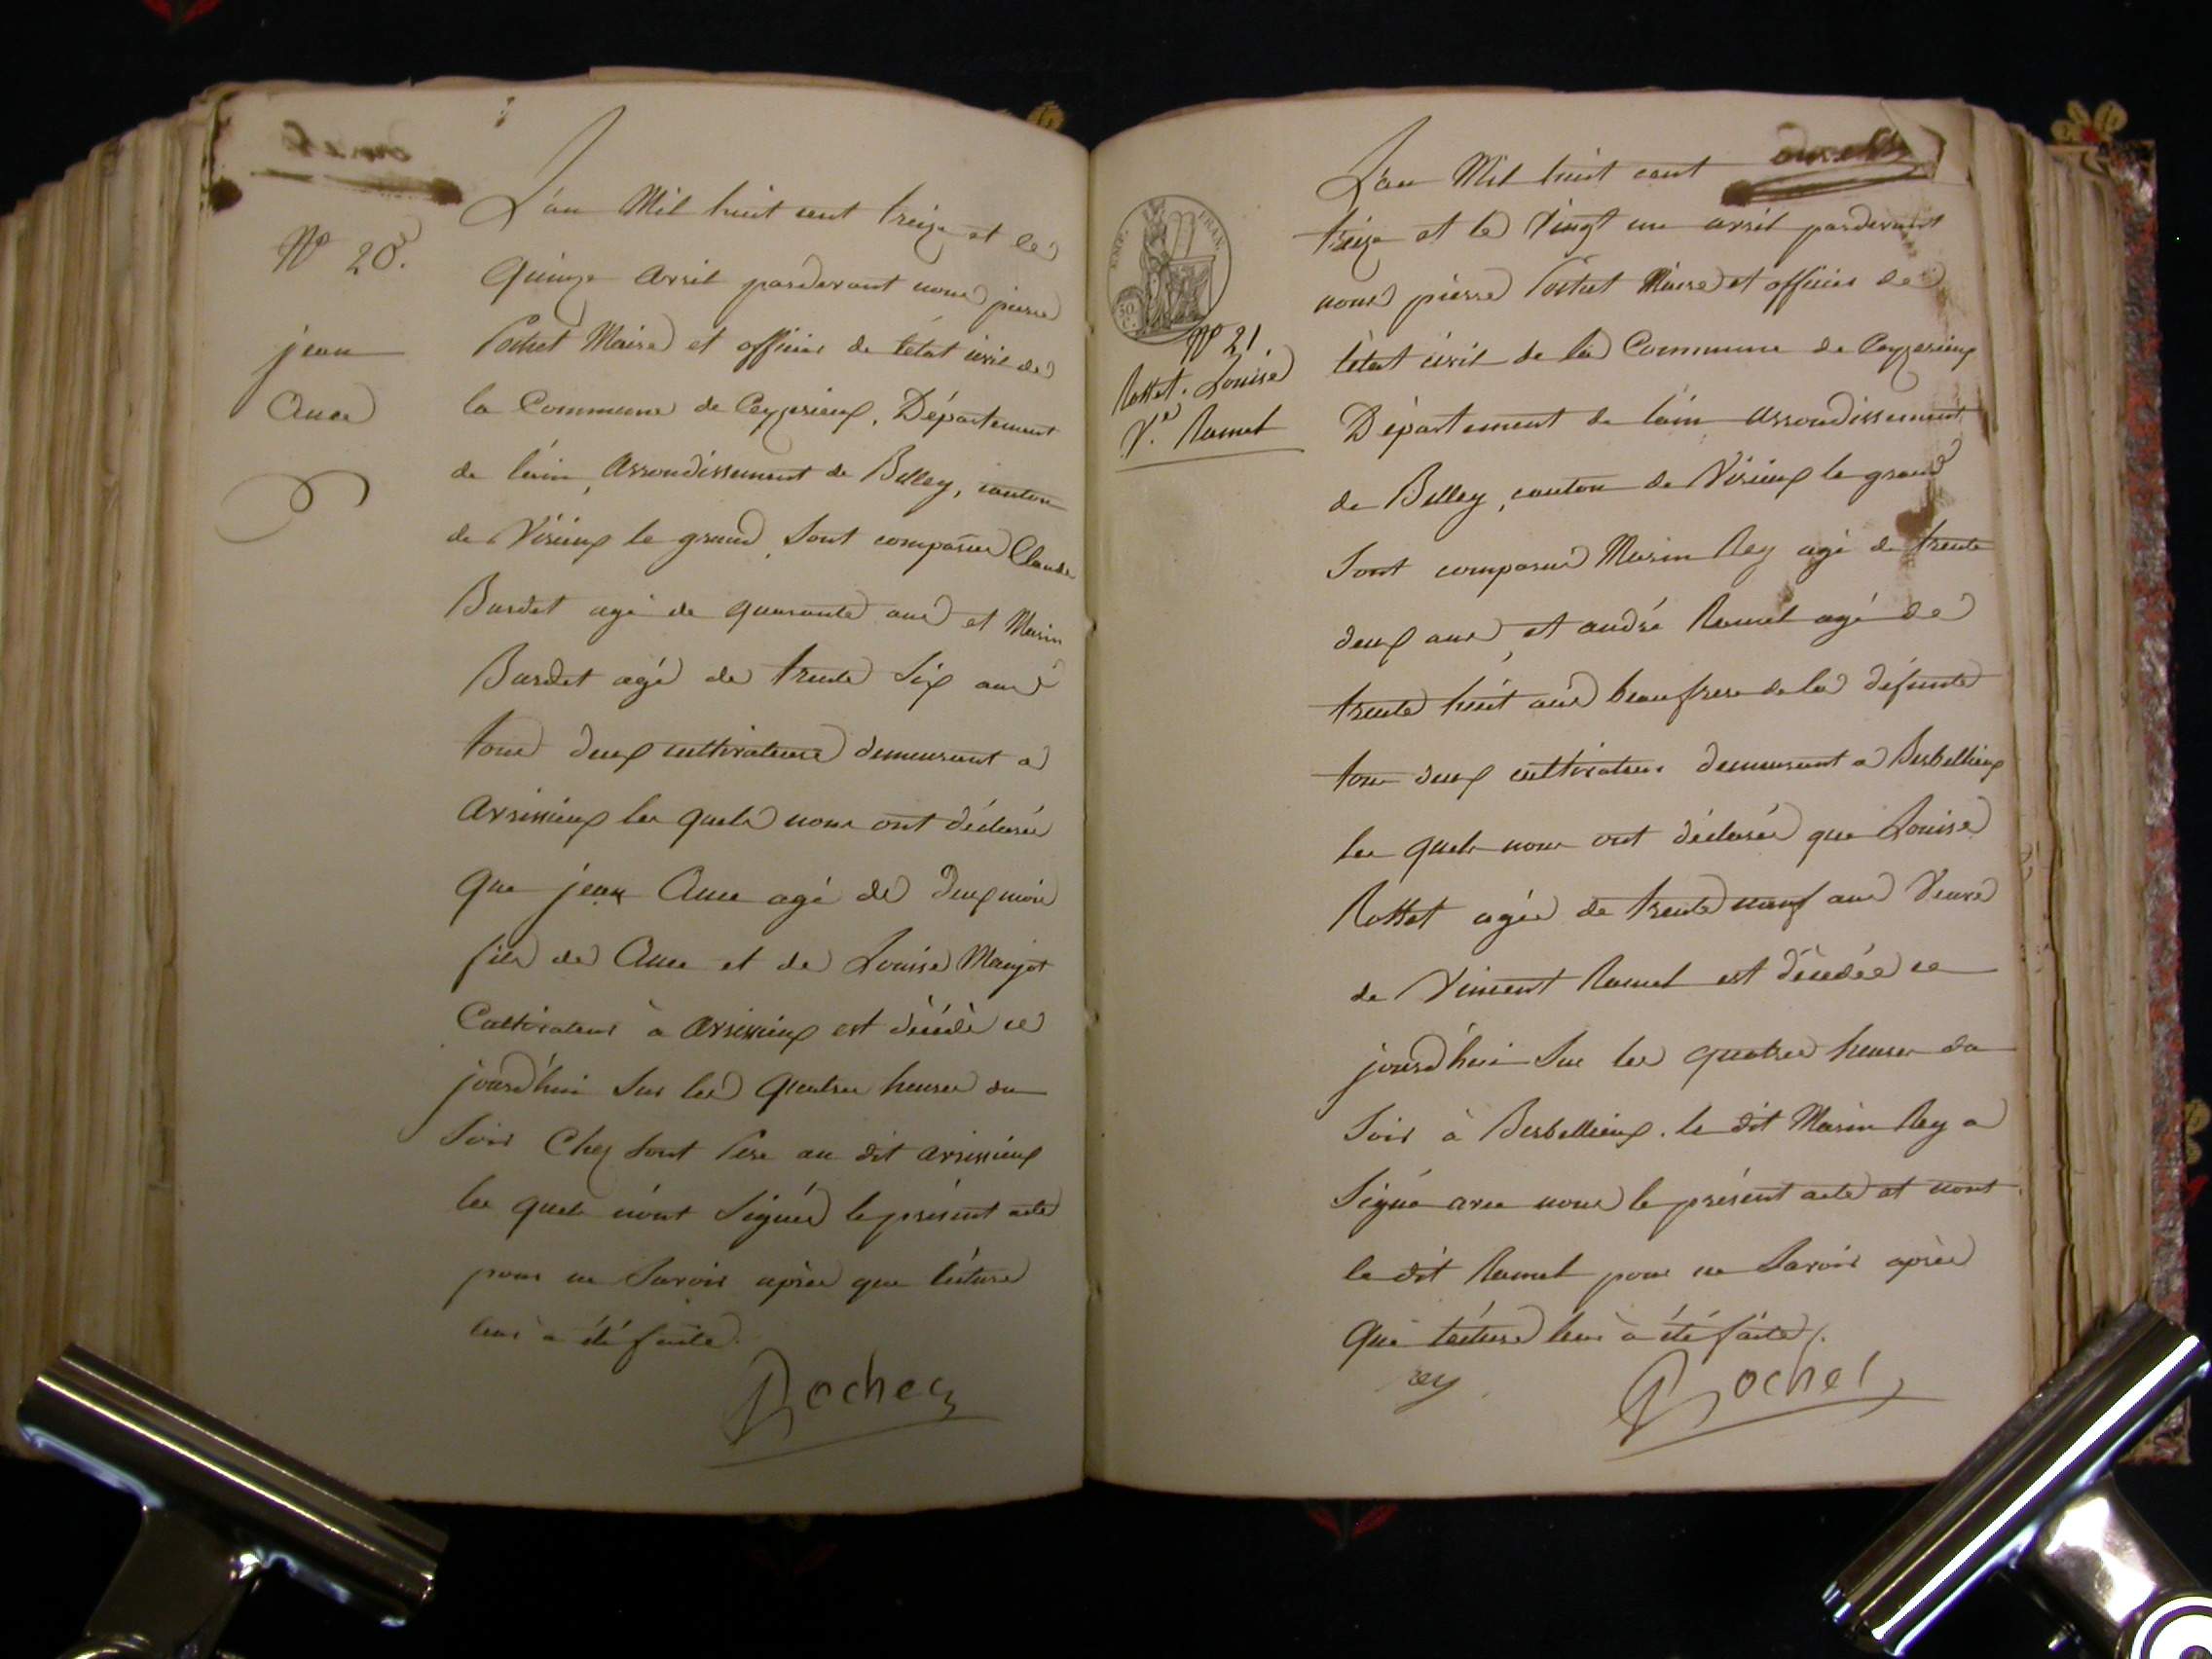 N° 20.
jean
Ance
L'an Mil huit cent treize et le
quinze avril pardevant nous pierre
Pochet Maire et officier de l'état civil de
la Commune de Ceyzerieux, Département
de l'ain, arrondissement de Belley, canton
de Virieux le grand, Sont comparus Claude
Burdet agé de quarante ans et Marin
Burdet agé de trente Six ans
tous deux cultivateurs demeurant a
avrissieux les quels nous ont déclarés
que jean Ance agé de deux mois
fils de Ance et de Louise
Cultivateur à avrissieux est décédé ce
jourd'hui Sur les quatre heures du
Soir Chez Sont Pere au dit avrissieux
les quels n'ont Signés le présent acte
pour ne Savoir après que lécture
leur a été faite.
Pochet
N° 21
Rottet. Louise
V.e Ramel
L'an Mil huit cent
treize et le vingt un avril pardevant
nous pierre Pochet Maire et officier de
l'état civil de la Commune de Ceyzerieux
Département de l'ain arrondissement
de Belley, canton de Virieux le grand
Sont comparus Marin Rey agé de trente
deux ans, et andré Ramel agé de
trente huit ans beaufrere de la défunte
tous deux cultivateurs demeurant a
les quels nous ont déclarés que Louise
Rottet agée de trente neuf ans Veuve
de Vincent Ramel est décédée ce
jourd'hui Sur les quatre heures du
Soir à le dit Marin Rey a
Signé avec nous le présent acte et nont
le dit Ramel pour ne Savoir après
que lécture leur à été faite.
Rey
Pochet